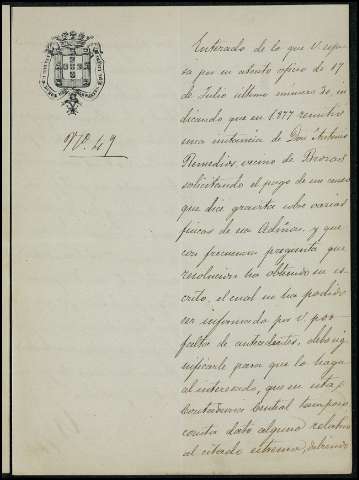 Nº. 49
Enterado de lo que V. expre-
sa por su atento oficio de 17
de Julio último número 30, in-
dicando que en 1.877 remitió
una instancia de Don Antonio
Remedios vecino de Brozas
solicitando el pago de un censo
que dice gravita sobre varias
fincas de esa Admon. y que
con frecuencia pregunta qué
resolucion ha obtenido su es-
crito, el cual no ha podido
ser informado por V. por
falta de antecedentes, debo sig-
nificarle para que lo haga
al interesado, que en esta
Contaduria Central tampoco
consta dato alguno relativo
al citado extremo, debiendo